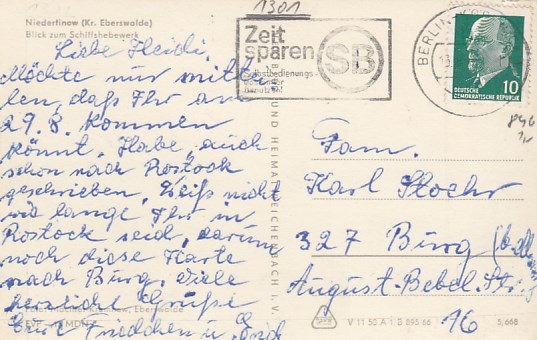 1301
Niederfinow (Kr. Eberswalde)
Blick zum Schiffshebewerk
Liebe Heidi,
Möchte nur mittei
len, daß Ihr am
29.8. kommen
könnt. Habe, auch
schon nach Rostock
geschrieben. Weiß nicht
wie lange Ihr in
Rostock seid, darum
noch diese Karte
nach Burg. Viele
herzliche Grüße
Friedchen u. Erich
Zeit
sparen
SB
Selbstbedienungs-
benutzen!
BERLIN
DEUTSCHE
DEMOKRATISCHE REPUBLIK
10
UND HEIMAT REICHENBACH I. V.
Fam.
Karl Stochr
327 Burg
August-Bebel-Str.
16
Eberswalde
V 11 50 A 1 3 895 66
5,668